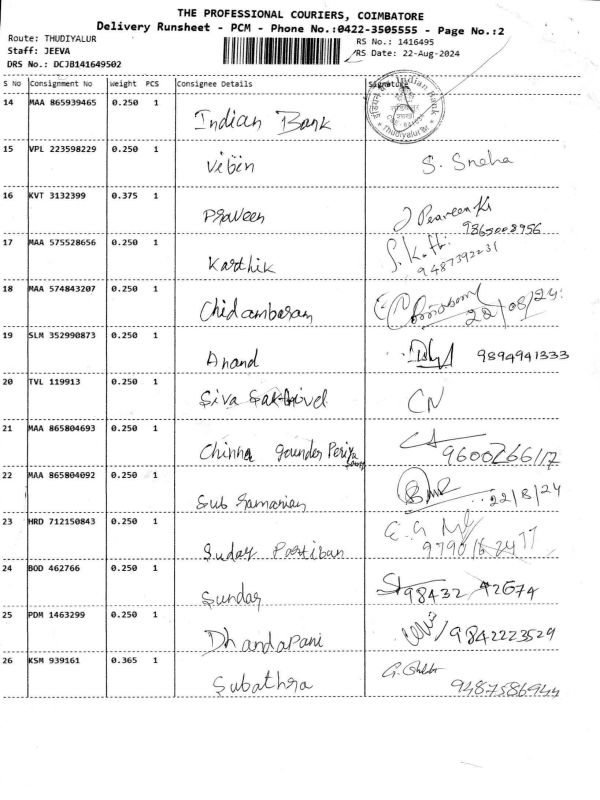 THE PROFESSIONAL COURIERS, COIMBATORE
Delivery Runsheet - PCM - Phone No.:0422-3505555 - Page No.:2
Route: THUDIYALUR
RS No.: 1416495
Staff: JEEVA
RS Date: 22-Aug-2024
DRS No.: DCJB141649502
S No Consignment No Weight PCS Consignee Details Signature
14 MAA 865939465 0.250 1 Indian Bank
15 VPL 223598229 0.250 1 Vibin S. Sneha
16 KVT 3132399 0.375 1 Praveen
9865008956
17 MAA 575528656 0.250 1 Karthik
9487392231
18 MAA 574843207 0.250 1 Chidambaram 22/08/24
19 SLM 352990873 0.250 1 Anand 9894941333
20 TVL 119913 0.250 1 Siva Sakthivel CN
21 MAA 865804693 0.250 1 Chinna gounder Periya
Samy 9600266117
22 MAA 865804092 0.250 1 Sub 22/8/24
23 HRD 712150843 0.250 1 Partiban
24 BOD 462766 0.250 1 Sundar 98432 42674
25 PDM 1463299 0.250 1 Dhandapani 9842223529
26 KSM 939161 0.365 1 Subathra
9487586944